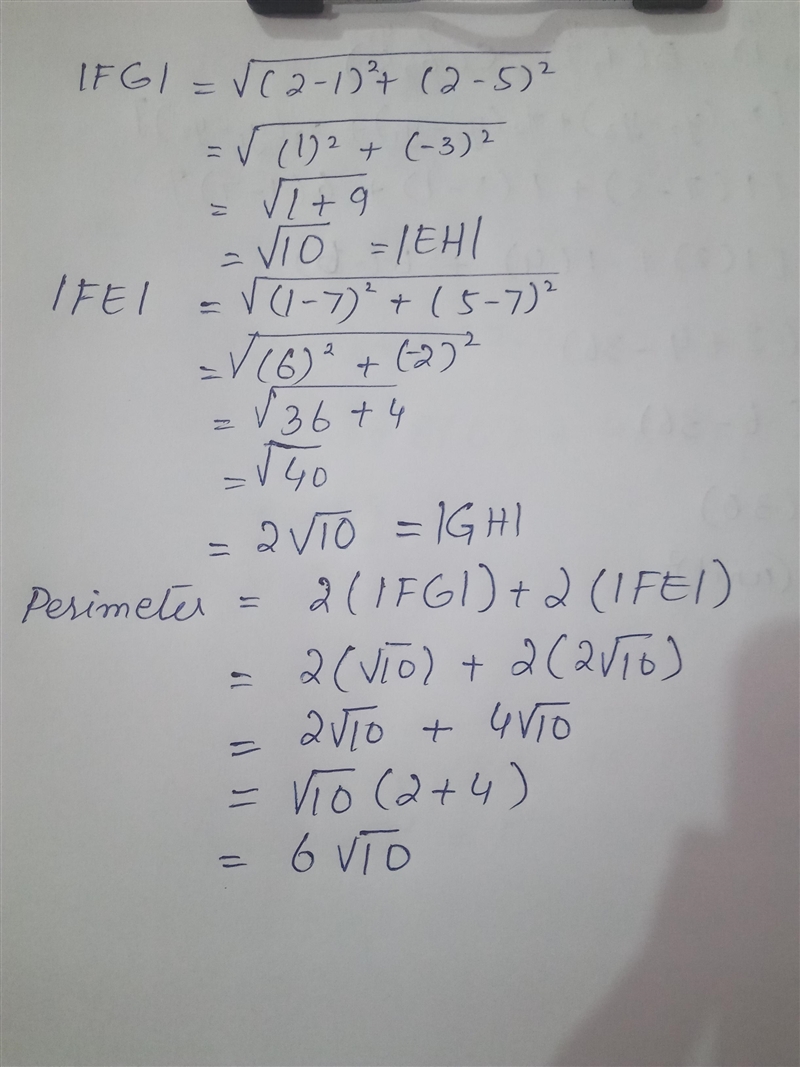 |FG| = √(2-1)² + (2-5)²
= √(1)² + (-3)²
= √1+9
= √10 = |EH|
|FE| = √(1-7)² + (5-7)²
= √(6)² + (-2)²
= √36 + 4
= √40
= 2√10 = |GH|
Perimeter = 2(|FG|) + 2(|FE|)
= 2(√10) + 2(2√10)
= 2√10 + 4√10
= √10 (2+4)
= 6√10